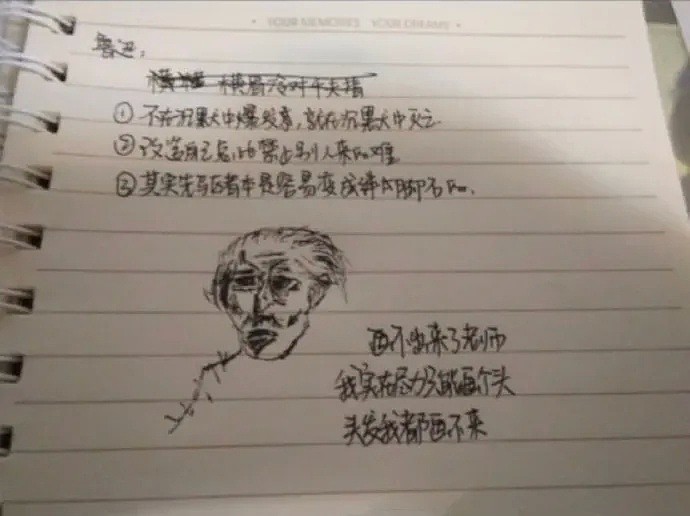 YOUR MEMORIES YOUR DREAMS
鲁迅:
横眉冷对千夫指
①不在沉默中爆发,就在沉默中灭亡.
②改造自己,总比禁止别人来的难
③其实先驱者本是容易变成绊脚石的.
画不出来了老师
我实在尽力只能画个头
头发我都画不来